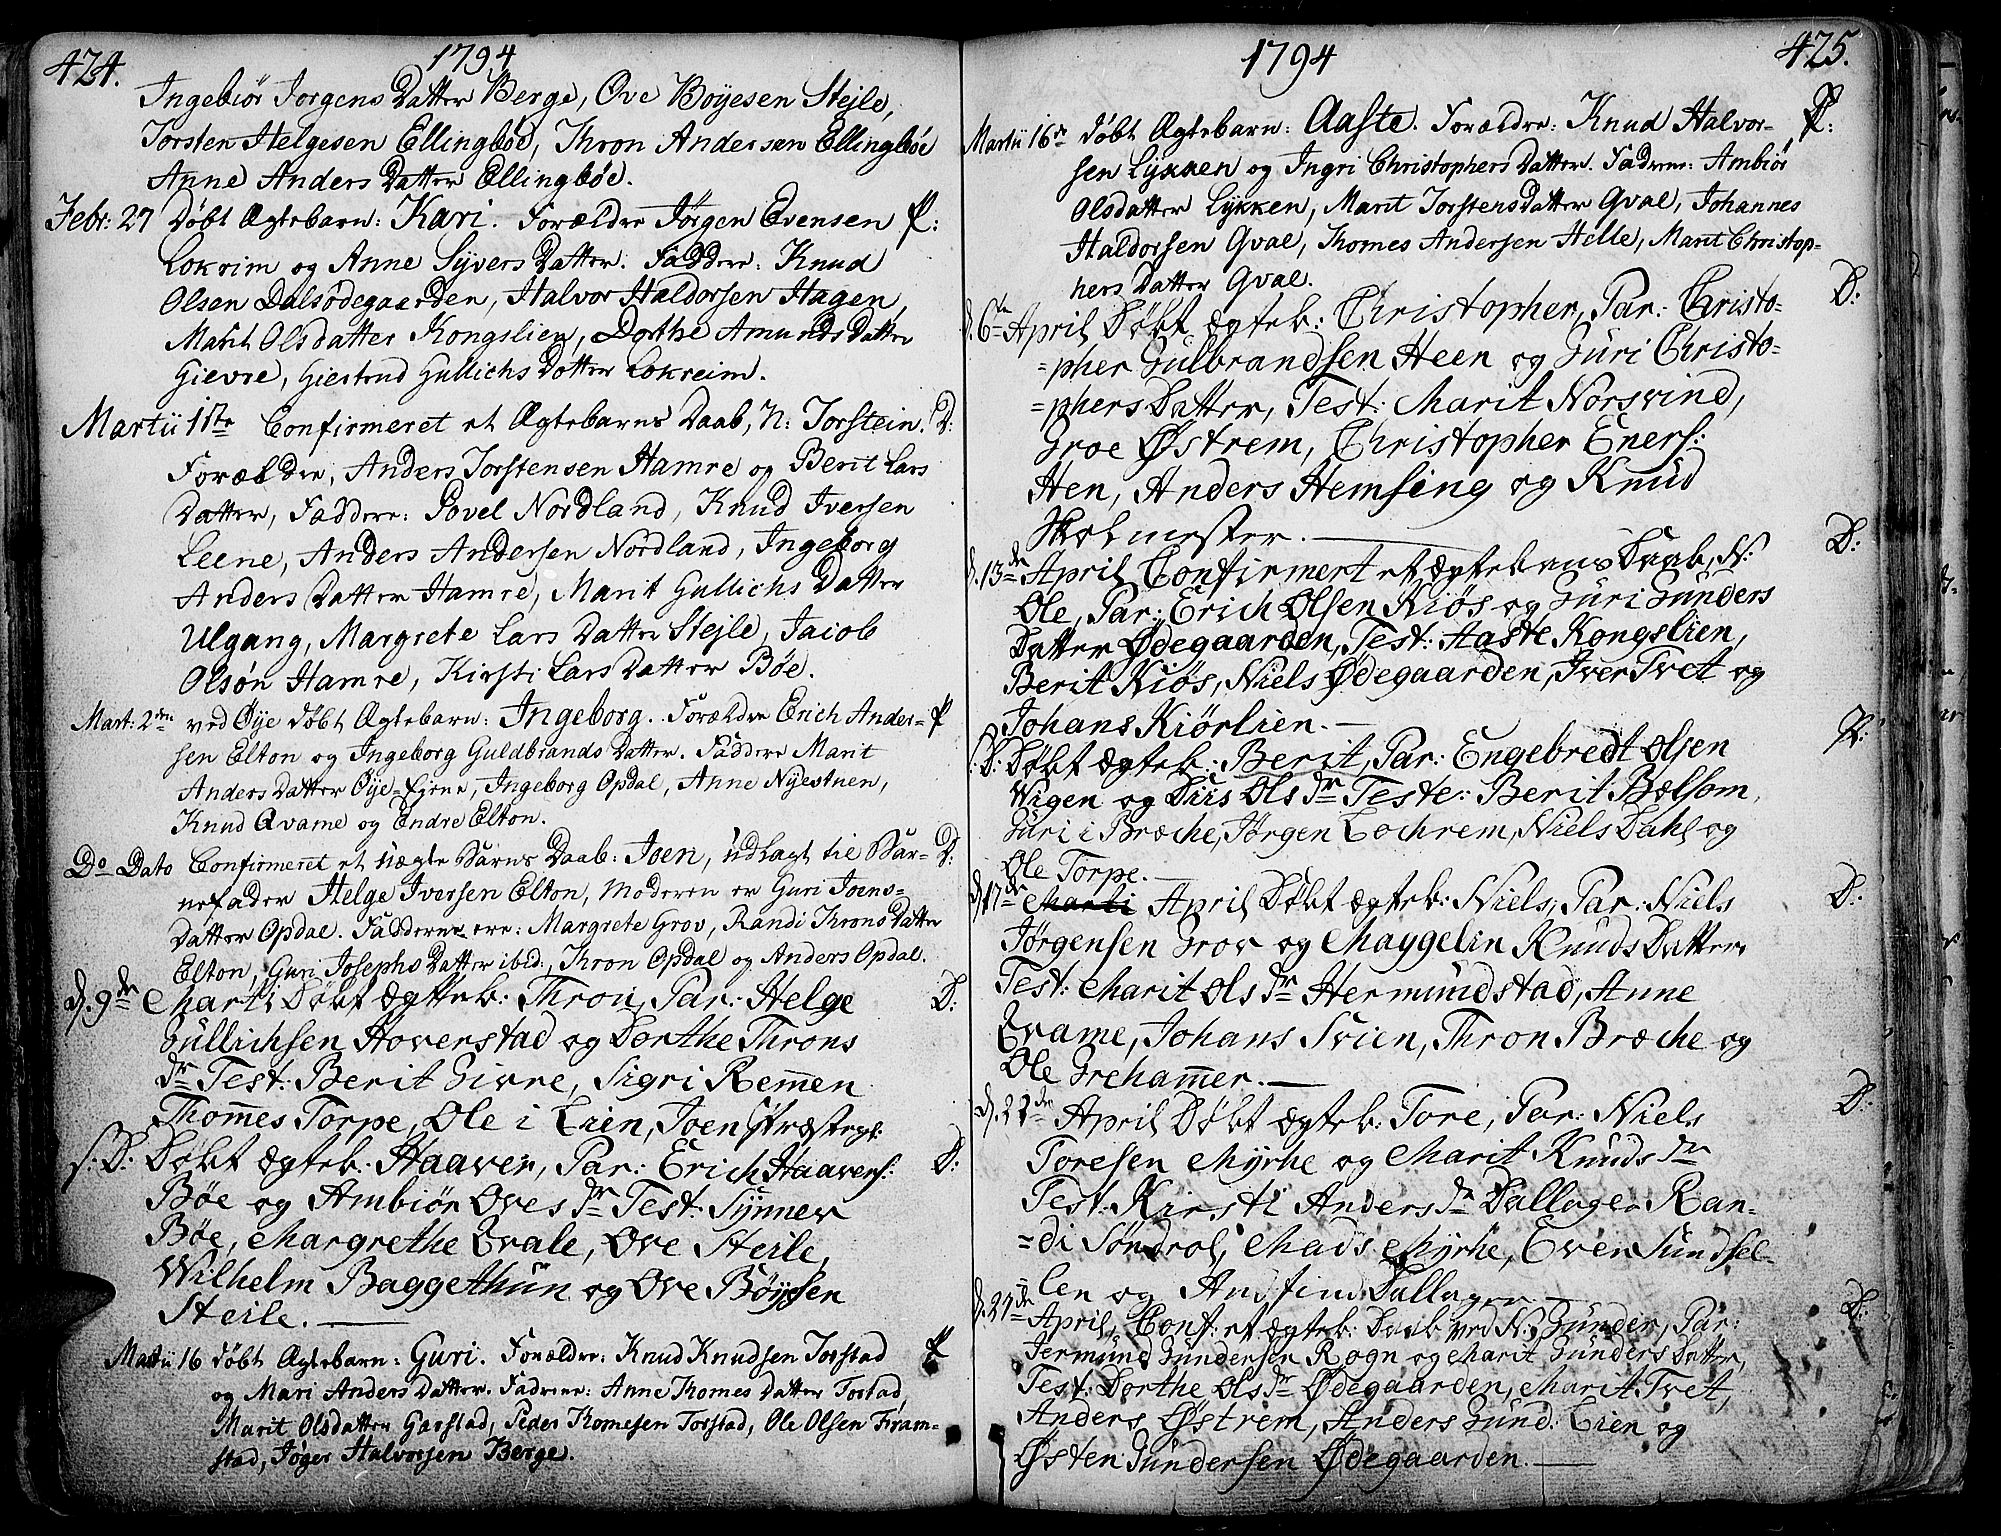 424. 1794
Ingebiör Jorgens Datter Berge, Ove Boyesen Stejle,
Torsten Helgesen Ellingböe, Thron Andersen Ellingböe
Anne Anders Datter Ellingböe.
Febr: 27 Döbt Ægtebarn: Kari. Forældre Jörgen Evensen P:
Lokrim og Anne Syvers Datter. Faddere: Knud
Olsen Dalsödegaarden, Halvor Haldorsen Hagen,
Marit Olsdatter Kongslien, Dorthe Amunds Datter
Gievre, Giertrud Gullichs Datter Lokreim.
Martii 1ste Confirmeret et Ægtebarns Daab, N: Torstein. D:
Forældre, Anders Torstensen Hamre og Berit Lars
Datter, Faddere: Povel Nordland, Knud Iversen
Leene, Anders Andersen Nordland, Ingeborg
Anders Datter Hamre, Marit Gullichs Datter
Ulgang, Margrete Lars Datter Stejle, Jacob
Olsön Hamre, Kirsti Lars Datter Böe.
Mart: 2den ved Øye döbt Ægtebarn: Ingeborg. Forældre Erich Ander- P
sen Elton og Ingeborg Guldbrands Datter. Faddere Marit
Anders Datter Øye-Ejene, Ingeborg Opdal, Anne Nyestuen,
Knud Qvame og Endre Elton.
Do Dato Confirmeret et uægte Barns Daab: Joen, udlagt til Bar- D:
nefader Helge Iversen Elton, Moderen er Guri Joens-
Datter Opdal. Fadderne ere: Margrete Grov, Randi Throns Datter
Elton, Guri Josephs Datter ibid:, Thron Opdal og Anders Opdal.
d. 9de Marti Döbt ægteb: Thron, Par: Helge D:
Gullichsen Hoverstad og Dorthe Throns
dr Test: Berit Givre, Sigri Remen
Thomes Torpe, Ole i Lien, Joen
s: D: Döbt ægteb: Haaver, Par: Erich Haavers: D:
Böe og Ambiör Oves dr Test: Synnev
Böe, Margrethe Qvale, Ove Steile,
Wilhelm Baggethun og Ove Böysen
Steile.
Martii 16 döbt Ægtebarn: Guri. Forældre: Knud Knudsen Torstad P
og Mari Anders Datter. Faddrene: Anne Thomes Datter Tostad,
Marit Olsdatter Garstad, Peder Thomesen Torstad, Ole Olsen Fram-
stad, Jöger Halvorsen Berge.
1794 425.
Martii 16de döbt Ægtebarn: Aaste. Forældre: Knud Halvor- P:
sen Lykken og Ingri Christophers Datter. Faddrene: Ambiör
Olsdatter Lykken, Marit Torstens Datter Qval, Johannes
Haldorsen Qval, Thomes Andersen Helle, Marit Christop-
hers Datter Qval.
d. 6te April Döbt ægteb: Christopher, Par: Christo- D:
-pher Gulbrandsen Heen og Guri Christo-
-phers Datter, Test: Marit Norsvind,
Groe Østrem, Christopher Eners:
Hen, Anders Hemsing og Knud
Skolmester.
d. 13de April Confirmert et ægtebarns Daab, N: D:
Ole, Par: Erich Olsen Kiös og Guri Gunders
Datter Ødegaarden, Test: Aaste Kongslien,
Berit Kiös, Niels Ødegaarden, Iver Tvet og
Johans Kiörlien.
s: D: Döbt ægteb: Berit, Par: Engebredt Olsen P:
Wigen og Siris Ols dr Teste: Berit Bælsom,
Guri i Bræche, Jörgen Lochrem, Niels Dahl og
Ole Torpe.
d. 17de April Döbt ægteb: Niels, Par: Niels D:
Jörgensen Grov og Maggelin Knuds Datter
Test: Marit Ols dr Hermundstad, Anne
Qvame, Johans Svien, Thron Bræche og
Ole Grehamer.
d. 21de April Döbt ægteb: Tore, Par: Niels D:
Toresen Myrhe og Marit Knuds dr
Test: Kirsti Anders dr Dallage, Ran-
-di Söndrol, Mads Myrhe, Even Sundsel-
len og Andfind Dallager
d. 21de April, Conf: et ægteb: Daab ved N: Gunder, Par: D:
Jermund Gundersen Rogn og Marit Gunders Datter,
Test: Dorthe Ols dr Ødegaarden, Marit Tvet,
Anders Østrem, Anders Gund: Lien og
Østen Gundersen Ødegaarden.